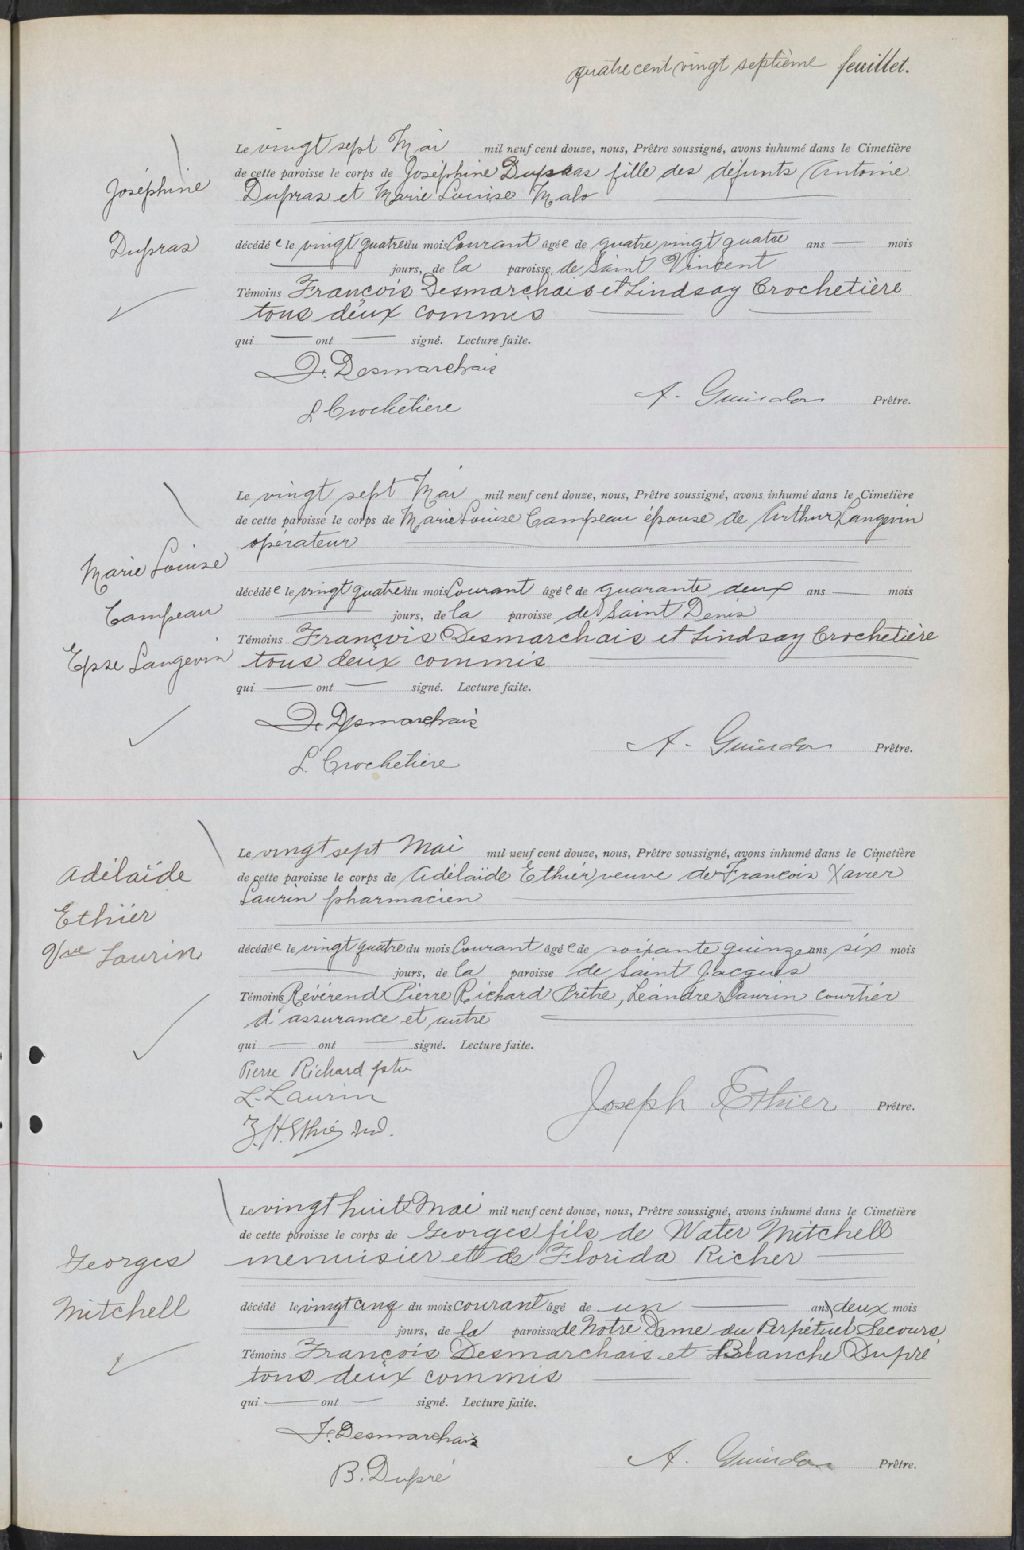 quatre cent vingt septième feuillet.
Joséphine
Dupras
Le vingt sept Mai mil neuf cent douze, nous, Prêtre soussigné, avons inhumé dans le Cimetière
de cette paroisse le corps de Joséphine Dupras fille des défunts Antoine
Dupras et Marie Louise Malo
décédée le vingt quatre du mois courant âgée de quatre vingt quatre ans — mois
— jours, de la paroisse de Saint Vincent
Témoins François Desmarchais et Lindsay Crochetière
tous deux commis
qui — ont — signé. Lecture faite.
F. Desmarchais
L Crochetiere
A. Guindon Prêtre.
Marie Louise
Campeau
Epse Langevin
Le vingt sept Mai mil neuf cent douze, nous, Prêtre soussigné, avons inhumé dans le Cimetière
de cette paroisse le corps de Marie Louise Campeau épouse de Arthur Langevin
opérateur
décédée le vingt quatre du mois courant âgée de quarante deux ans — mois
— jours, de la paroisse de Saint Denis
Témoins François Desmarchais et Lindsay Crochetière
tous deux commis
qui — ont — signé. Lecture faite.
F. Desmarchais
L. Crochetiere
A. Guindon Prêtre.
Adélaïde
Ethier
Vve Laurin
Le vingt sept Mai mil neuf cent douze, nous, Prêtre soussigné, avons inhumé dans le Cimetière
de cette paroisse le corps de Adélaïde Ethier veuve de François Xavier
Laurin pharmacien
décédée le vingt quatre du mois courant âgée de soixante quinze ans six mois
— jours, de la paroisse de Saint Jacques
Témoins Révérend Pierre Richard Prêtre, Léandre Laurin courtier
d'assurance et autre
qui — ont — signé. Lecture faite.
Pierre Richard ptre
L. Laurin
Z. H. Ethier
Joseph Ethier Prêtre.
Georges
Mitchell
Le vingt huit Mai mil neuf cent douze, nous, Prêtre soussigné, avons inhumé dans le Cimetière
de cette paroisse le corps de Georges fils de Water Mitchell
menuisier et de Florida Richer
décédé le vingt cinq du mois courant âgé de un — ans deux mois
— jours, de la paroisse de Notre Dame du Perpétuel Secours
Témoins François Desmarchais et Blanche Dupré
tous deux commis
qui — ont — signé. Lecture faite.
F. Desmarchais
B. Dupré
A. Guindon Prêtre.